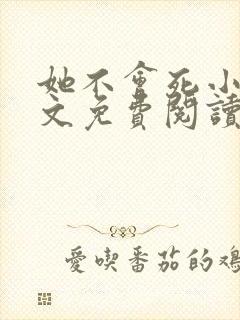 她不會死小
文免費閱讀
愛喫番茄的雞